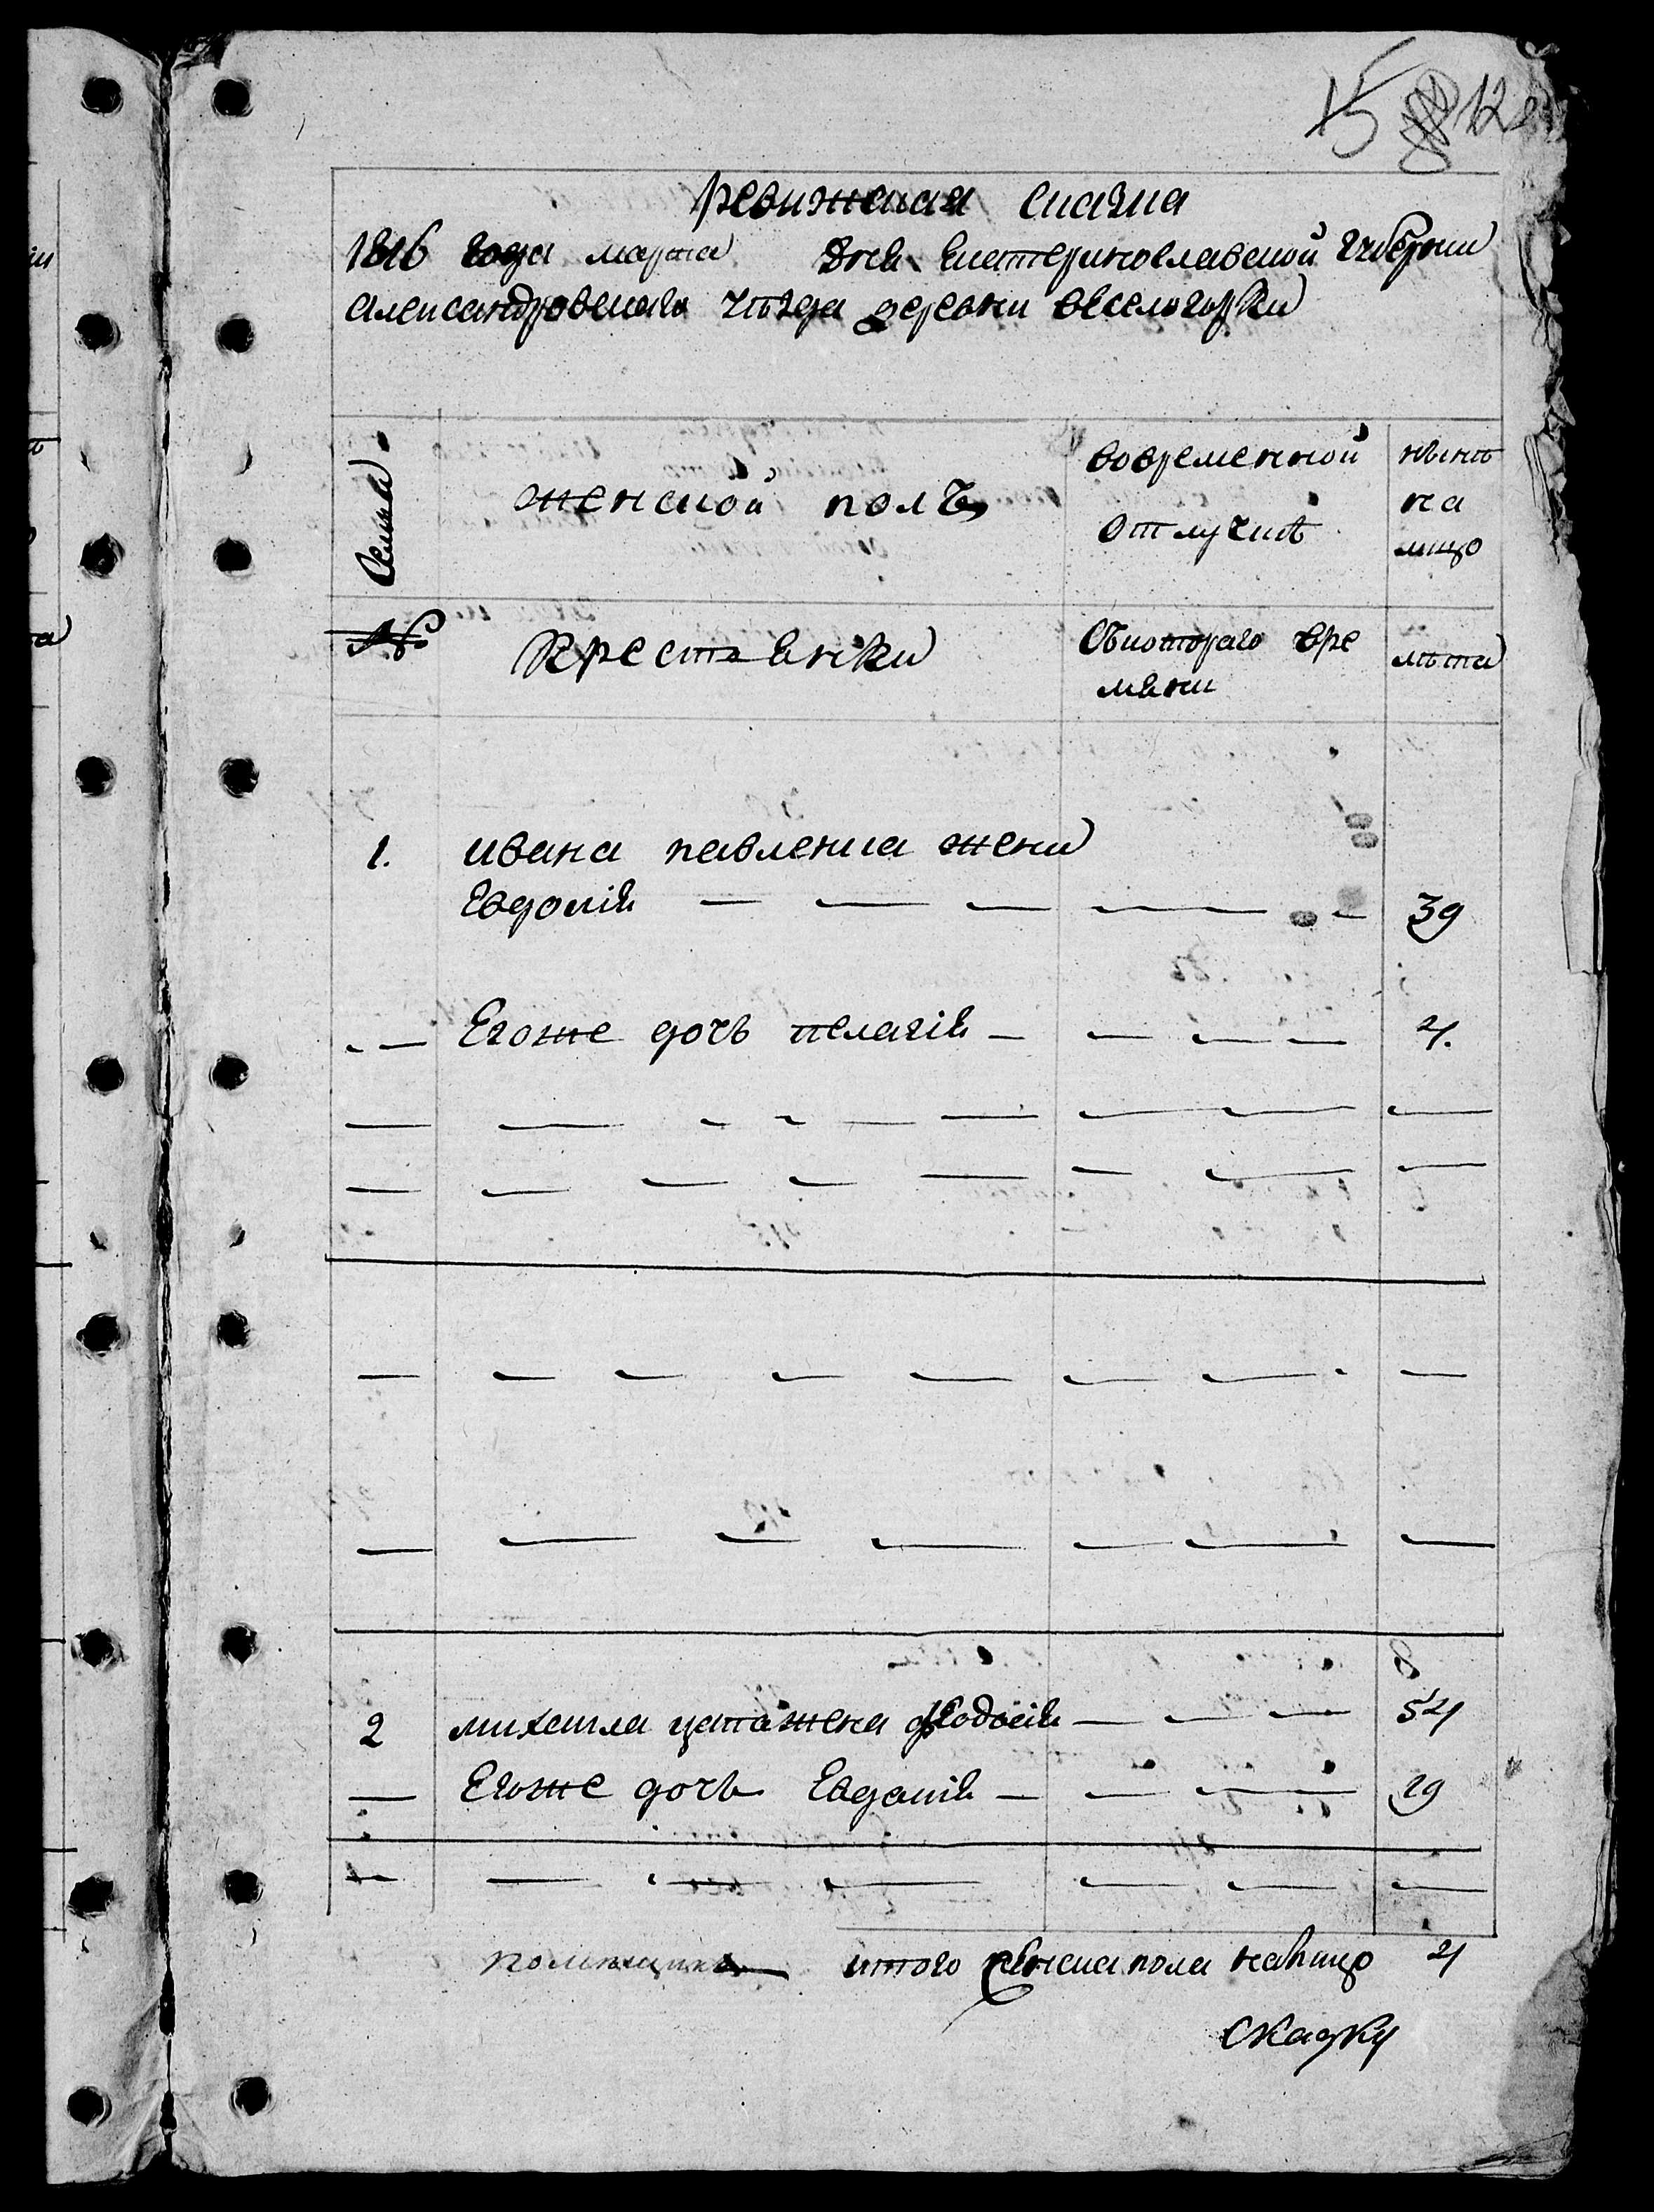 15 12
ревижская скаска
1816 года марта дня Екатеринославской губернии
александровскаго уѣзда деревни веселогорки
Семья
женской полъ
вовременной
отлучкѣ
нынѣ
на
лицо
№
Крестьянки
Съкотораго вре
мяни
лѣта
1. ивана павленка жена
Евдокія 39
Егоже дочь пелагія 4.
2 михаила цапа жена феодосія 54
Егоже дочь Евдокія 19
итого женска пола налицо 4
скаску